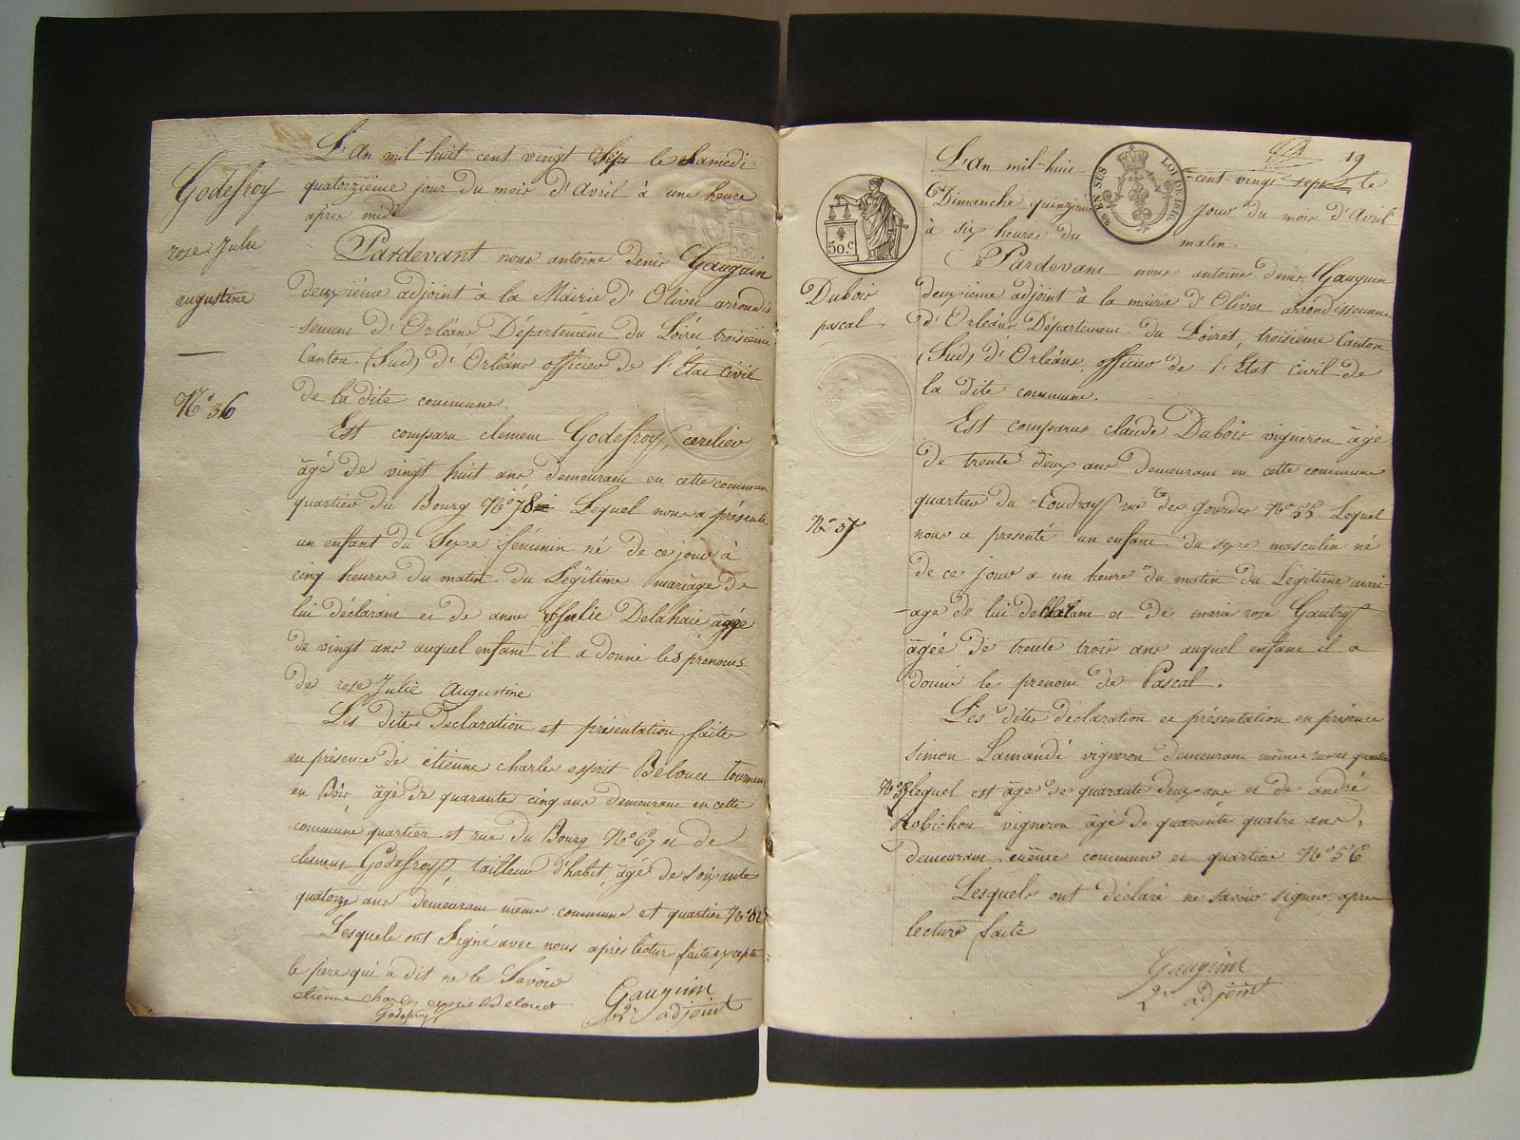 L'An mil huit cent vingt sept le Samedi
quatorzième jour du mois d'Avril à une heure
après midi
Godefroy
rose Julie
augustine
N° 36
Pardevant nous antoine denis Gauguin
deuxième adjoint à la Mairie d'Olivet arrondis
sement d'Orléans Département du Loiret troisième
Canton (Sud) d'Orléans officier de l'Etat civil
de la dite commune.
Est comparu clement Godefroy,
âgé de vingt huit ans demeurant en cette commune
quartier du Bourg N° 78 Lequel nous a présenté
un enfant du Sexe féminin né de ce jour à
cinq heures du matin du Légitime mariage de
lui déclarant et de anne Julie Delahaie agée
de vingt ans auquel enfant il a donné les prenoms
de rose Julie Augustine
Les dites Declaration et présentation faites
en présence de étienne charles esprit Belouet tourneur
en Bois âgé de quarante cinq ans demeurant en cette
commune quartier et rue du Bourg N° 67 et de
clement Godefroy, tailleur d'habit, âgé de soixante
quatorze ans demeurant même commune et quartier
Lesquels ont Signé avec nous après lecture faite excepté
le pere qui a dit ne le Savoir
étienne charles esprit Belouet
Godefroy
Gauguin
2e adjoint
19
L'An mil huit cent vingt sept le
Dimanche quinzieme jour du mois d'Avril
à six heures du matin.
EN SUS
LOI DE 1816
50.c
Dubois
pascal
N° 37
Pardevant nous antoine denis Gauguin
deuxième adjoint à la mairie d'Olivet arrondissement
d'Orléans Département du Loiret, troisième Canton
(Sud) d'Orléans, officier de l'Etat Civil de
la dite commune.
Est comparu claude Dubois vigneron âgé
de trente deux ans demeurant en cette commune
quartier du Coudray rue des gourdes N° 55 Lequel
nous a presenté un enfant du sexe masculin né
de ce jour a un heure du matin du Légitime mari-
-age de lui declarant et de marie rose Gautry
âgée de trente trois ans auquel enfant il a
donné le prenom de Pascal.
Les dites déclaration et présentation en présence
simon Lamandé vigneron demeurant même
lequel est âgé de quarante deux ans et de andré
Robichon vigneron âgé de quarante quatre ans,
demeurant même commune et quartier N° 56
Lesquels ont déclaré ne savoir signer après
lecture faite
Gauguin
2e adjoint